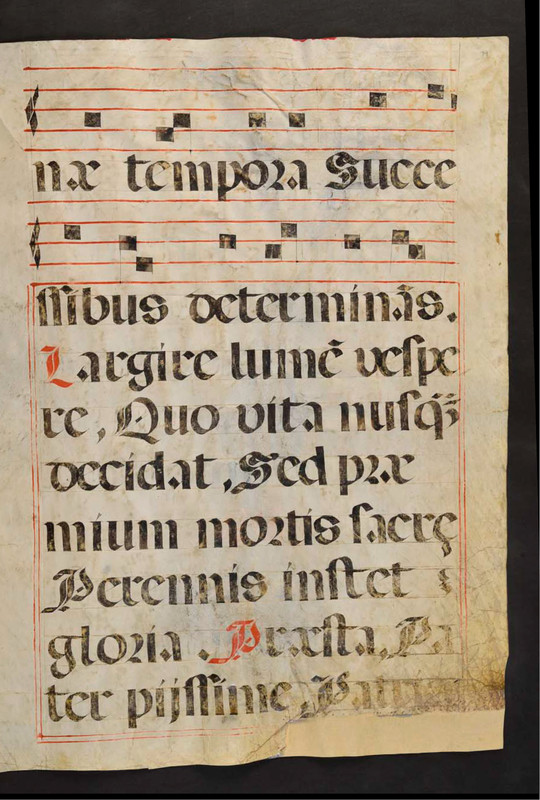 næ tempora Succe
ssibus determinãs.
Largire lumẽ vespe
re, Quo vita nusq̃ȝ
decidat, Sed præ
mium mortis sacrę
Perennis instet
gloria. Præsta, Pa
ter pijssime, Patri